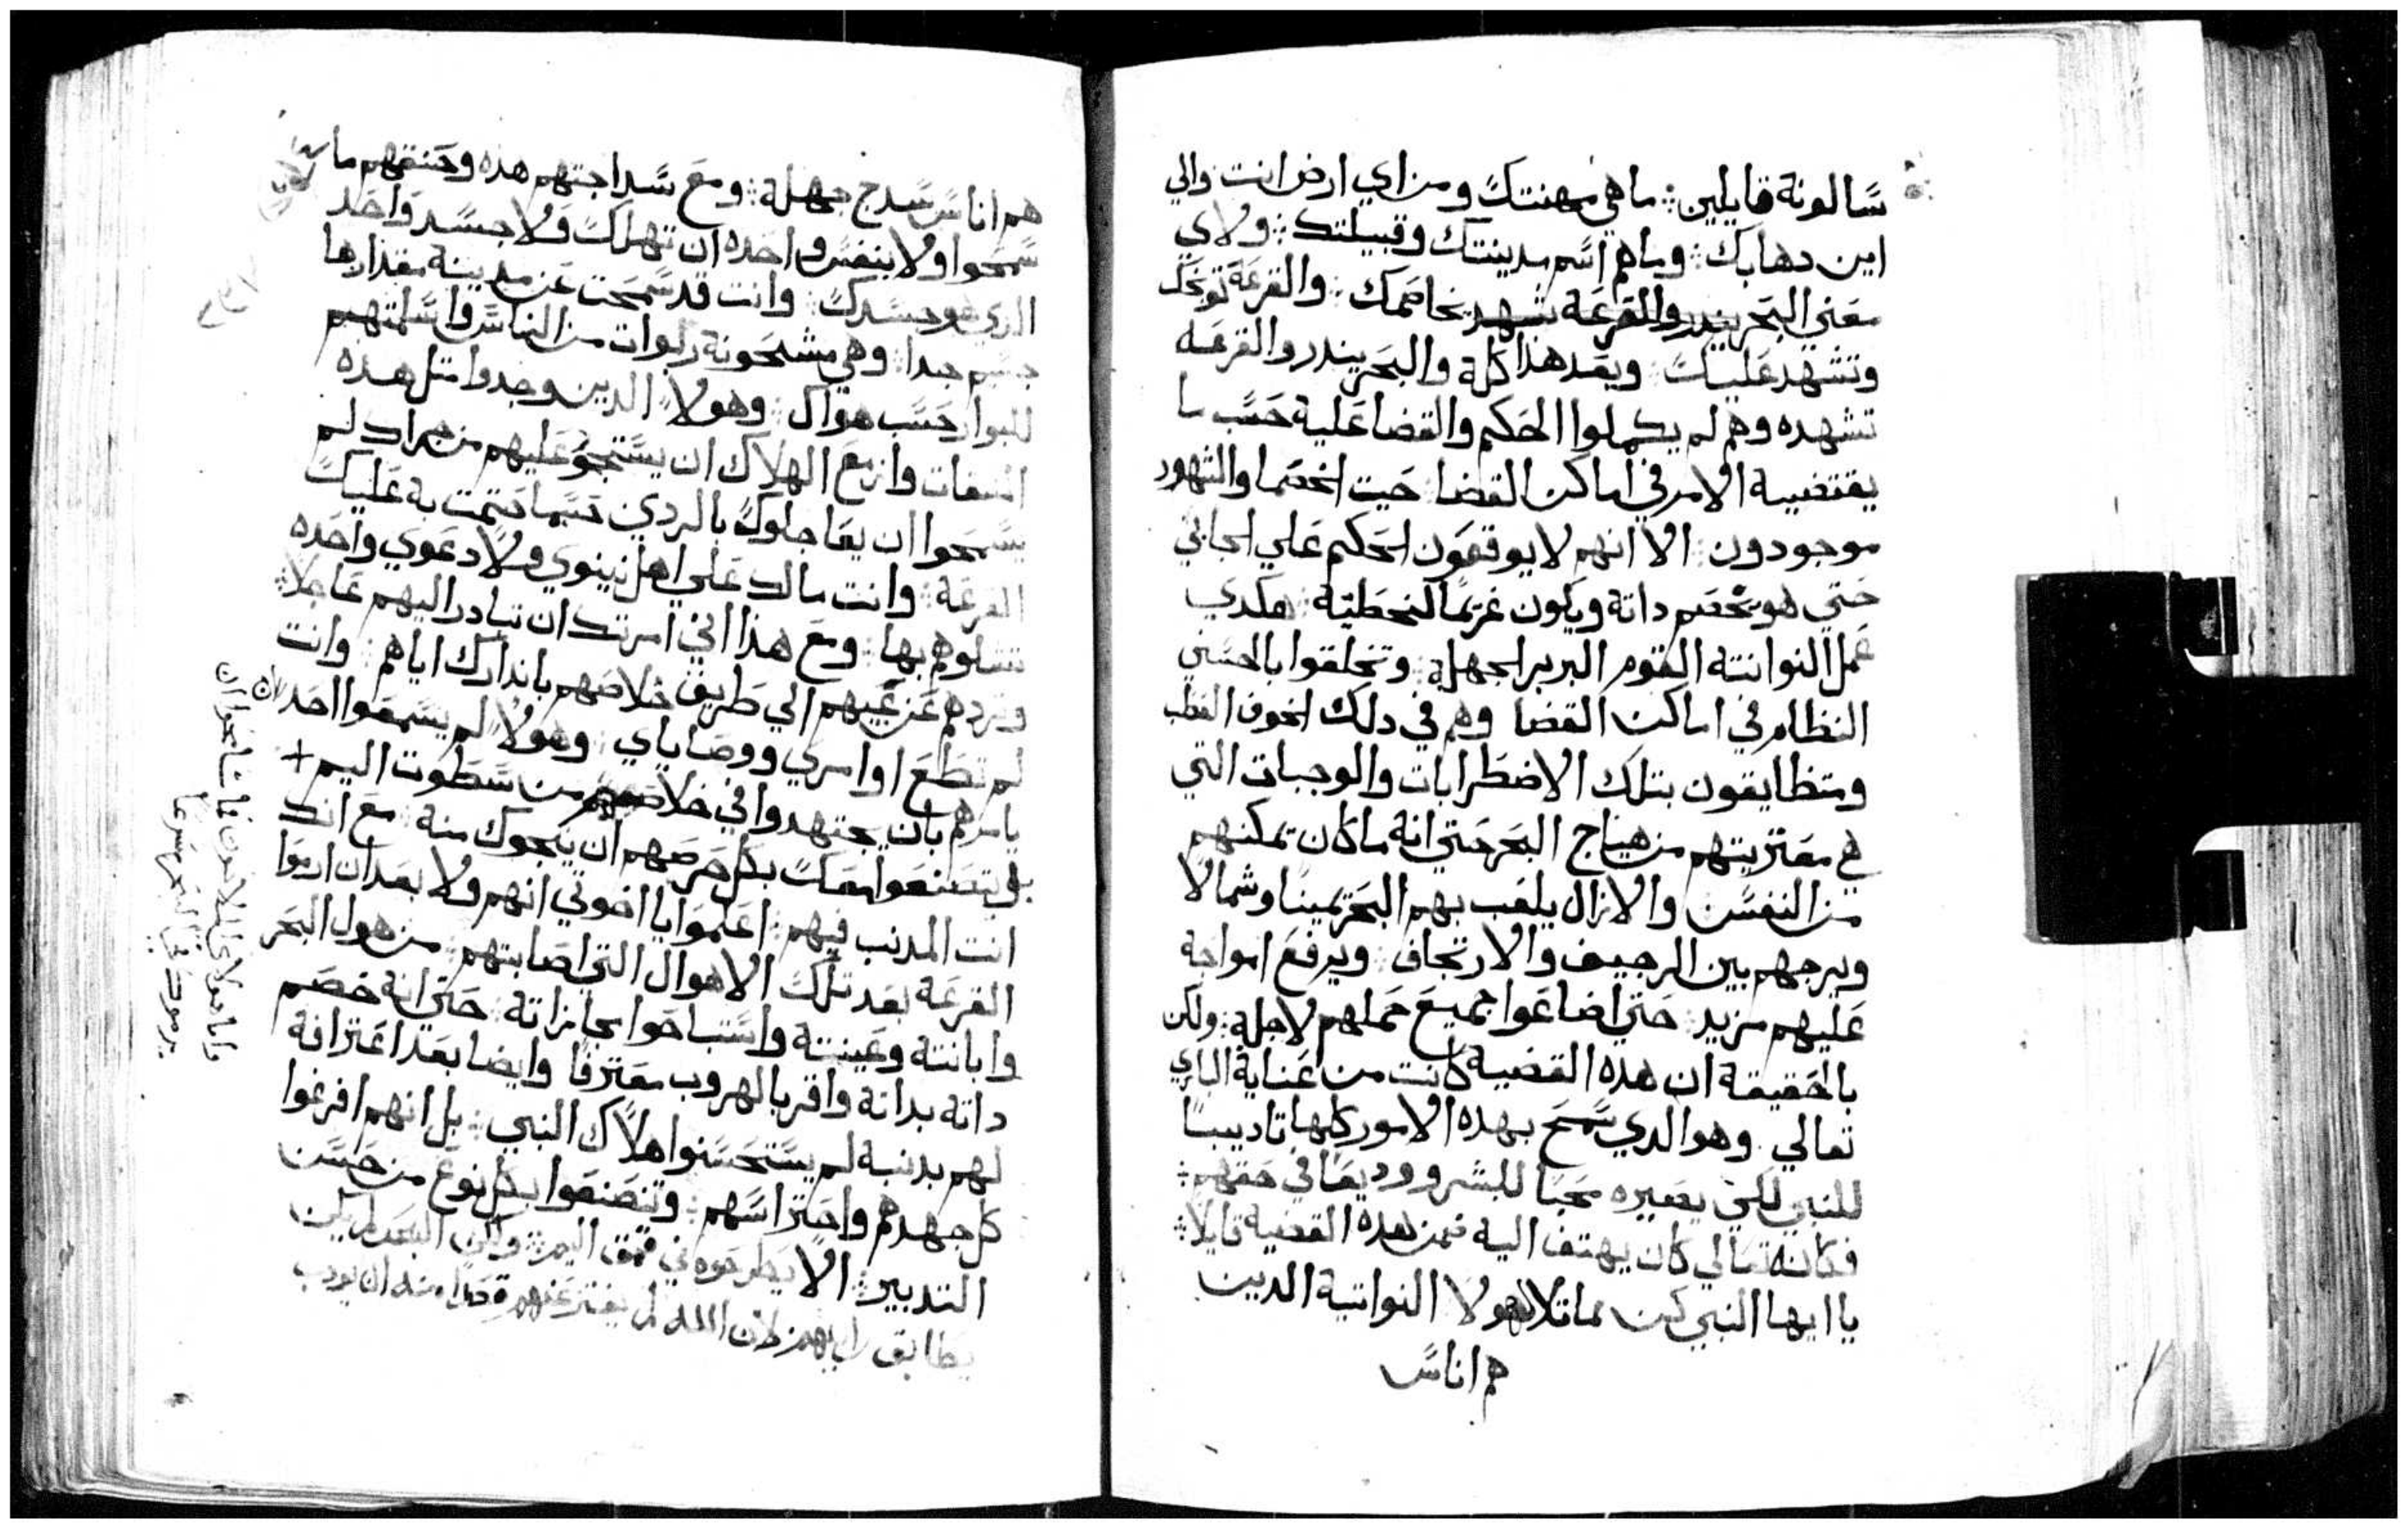 سالونة قايلين ما هي مهنتك ومن اي ارض انت والي
اين دهابك وما هو اسم مدينتك وقبيلتك ولاي
معني البحر يندر والقرعة تشهد نخاصمك والقرعة توكل
وتشهد عليك وبعد هذا كلة والبحر يندر والقرعه
تشهده وهم لم يكملوا الحكم والقضا علية حسب ما
يقتضيه الامر في اماكن القضا حيت الخصما والشهود
موجودون الا انهم لا يوقعون الحكم علي الجاني
حتي هو يخصم داتة ويكون غريمًا لخطيتة هكدي
عمل النواتته القوم البربر الجهلة وتخلقوا بالحسني
النظام في اماكن القضا وهم في دلك الخوف
ومتظايقون بتلك الاضطرابات والوجبات التي
هي معتريتهم من هياج البحر حتي انة ما كان يمكنهم
من النفس والا زال يلعب بهم البحر يمينًا وشمالا
ويرجهم بين الرجيف والارتجاف ويرفع امواجة
عليهم مزيد حتي اضاعوا جميع حملهم لاجلة ولكن
بالحقيقة ان هذه القضية كانت من عناية الباري
تعالي وهو الدي سمح بهده الامور كلها تاديبًا
للنبي لكي يصيره محبًا للبشر ووديعًا في حقهم
فكانه تعالي كان يهتف اليه ضمن هده القضية قايلا
يا ايها النبي كن مماثلا لهولا النواتية الدين
هم اناس
هم اناس سدج جهلة ومع سداجتهم هده وحنقهم ما
سمحوا ولا بنفس واحده ان تهلك ولا جسد واحد
الدي هو جسدك وانت قد سمحت عن مدينة مقدارها
جسيم جدا وهي مشحونة ربوات من الناس واسلمتهم
للبوار حسب هواك وهولا الدين وجدوا متل هده
وازمع الهلاك ان عليهم من لم
يسمحوا ان يعاجلوك بالردي حسبما حتمت به عليك
القرعة وانت مالك علي اهل نينوي ولا دعوي واحده
تشلوهم بها ومع هذا اني امرتك ان تبادر اليهم عاجلا
وتردهم عن غيهم الي طريق خلاصهم بانذارك اياهم وانت
لم تطع اوامري ووصاياي وهولا لم يسمعوا احد
يامرهم بان يجتهدوا في خلاصهم من سطوت اليم +
بل يتصنعوا معك بكل حرصهم ان ينجوك منه مع انك
انت المدنب فيهم اعلموا يا اخوتي انهم ولا بعد ان ارموا
القرعة بعد تلك الاهوال التي اصابتهم من هول البحر
وابانتة وعينتة واستباحوا مجازاتة حتي انه خصم
داته بداته واقر بالهروب معترفًا وايضا بعد اعترافة
لهم بدنبه لم يستحسنوا هلاك النبي بل انهم افرغوا
كل جهدهم واحتراسهم وتصنعوا بكل نوع من حسن
التدبير الا يطرحوه في عمق اليم ولكن البحر لم يكن
يطابق رايهم لان الله لم عنهم قصدا منه ان يودب